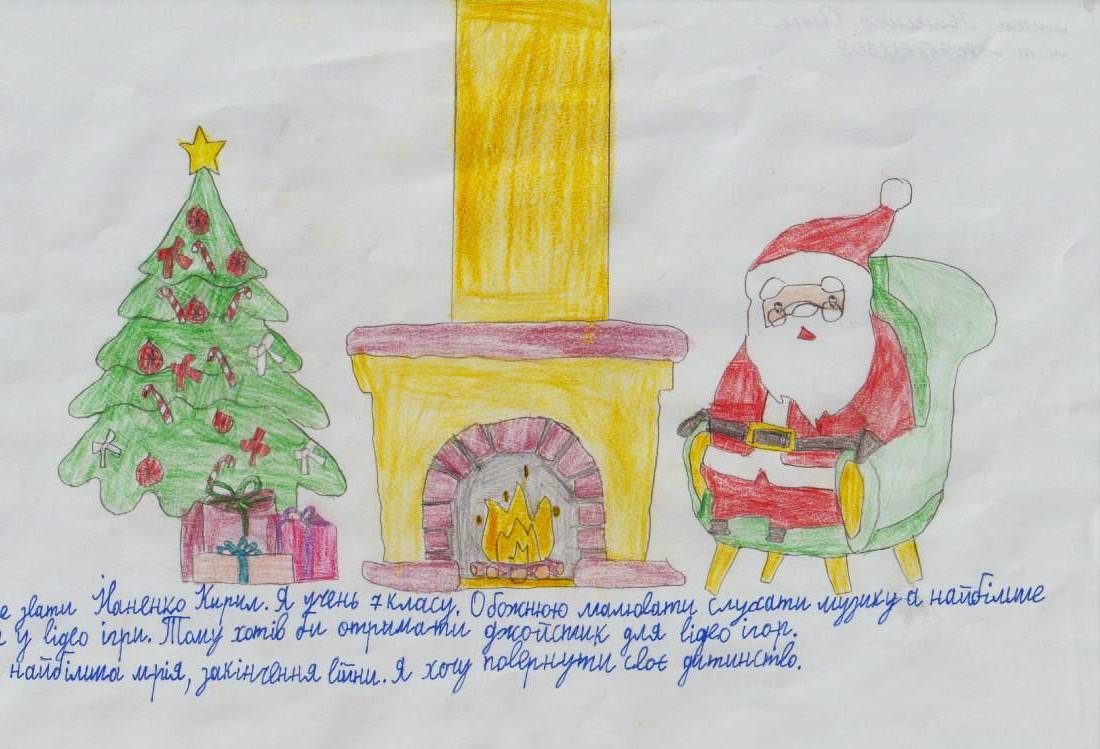 е звати Іваненко Кирил. Я учень 7 класу. Обожнюю малювати слухати музику а найбільше
у відео ігри. Тому хотів би отримати джойстик для відео ігор.
найбільша мрія, закінчення війни. Я хочу повернути своє дитинство.